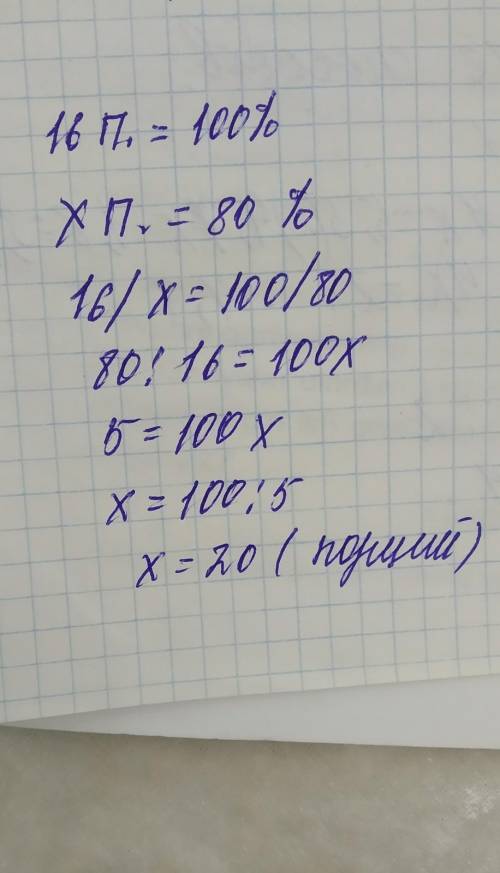 16 п. = 100%
х п. = 80 %
16/ х = 100/80
80 : 16 = 100х
5 = 100 х
х = 100 : 5
х = 20 ( порций)